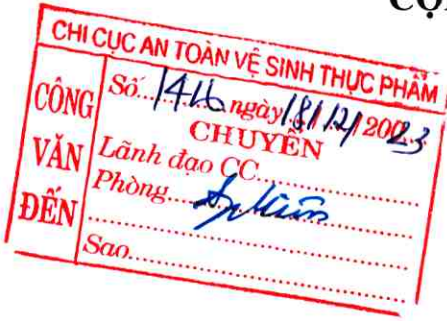 CHI CỤC AN TOÀN VỆ SINH THỰC PHẨM
CÔNG VĂN ĐẾN
Số...1416 ngày 18/12/2023
CHUYỂN
Lãnh đạo CC
Phòng
Sao